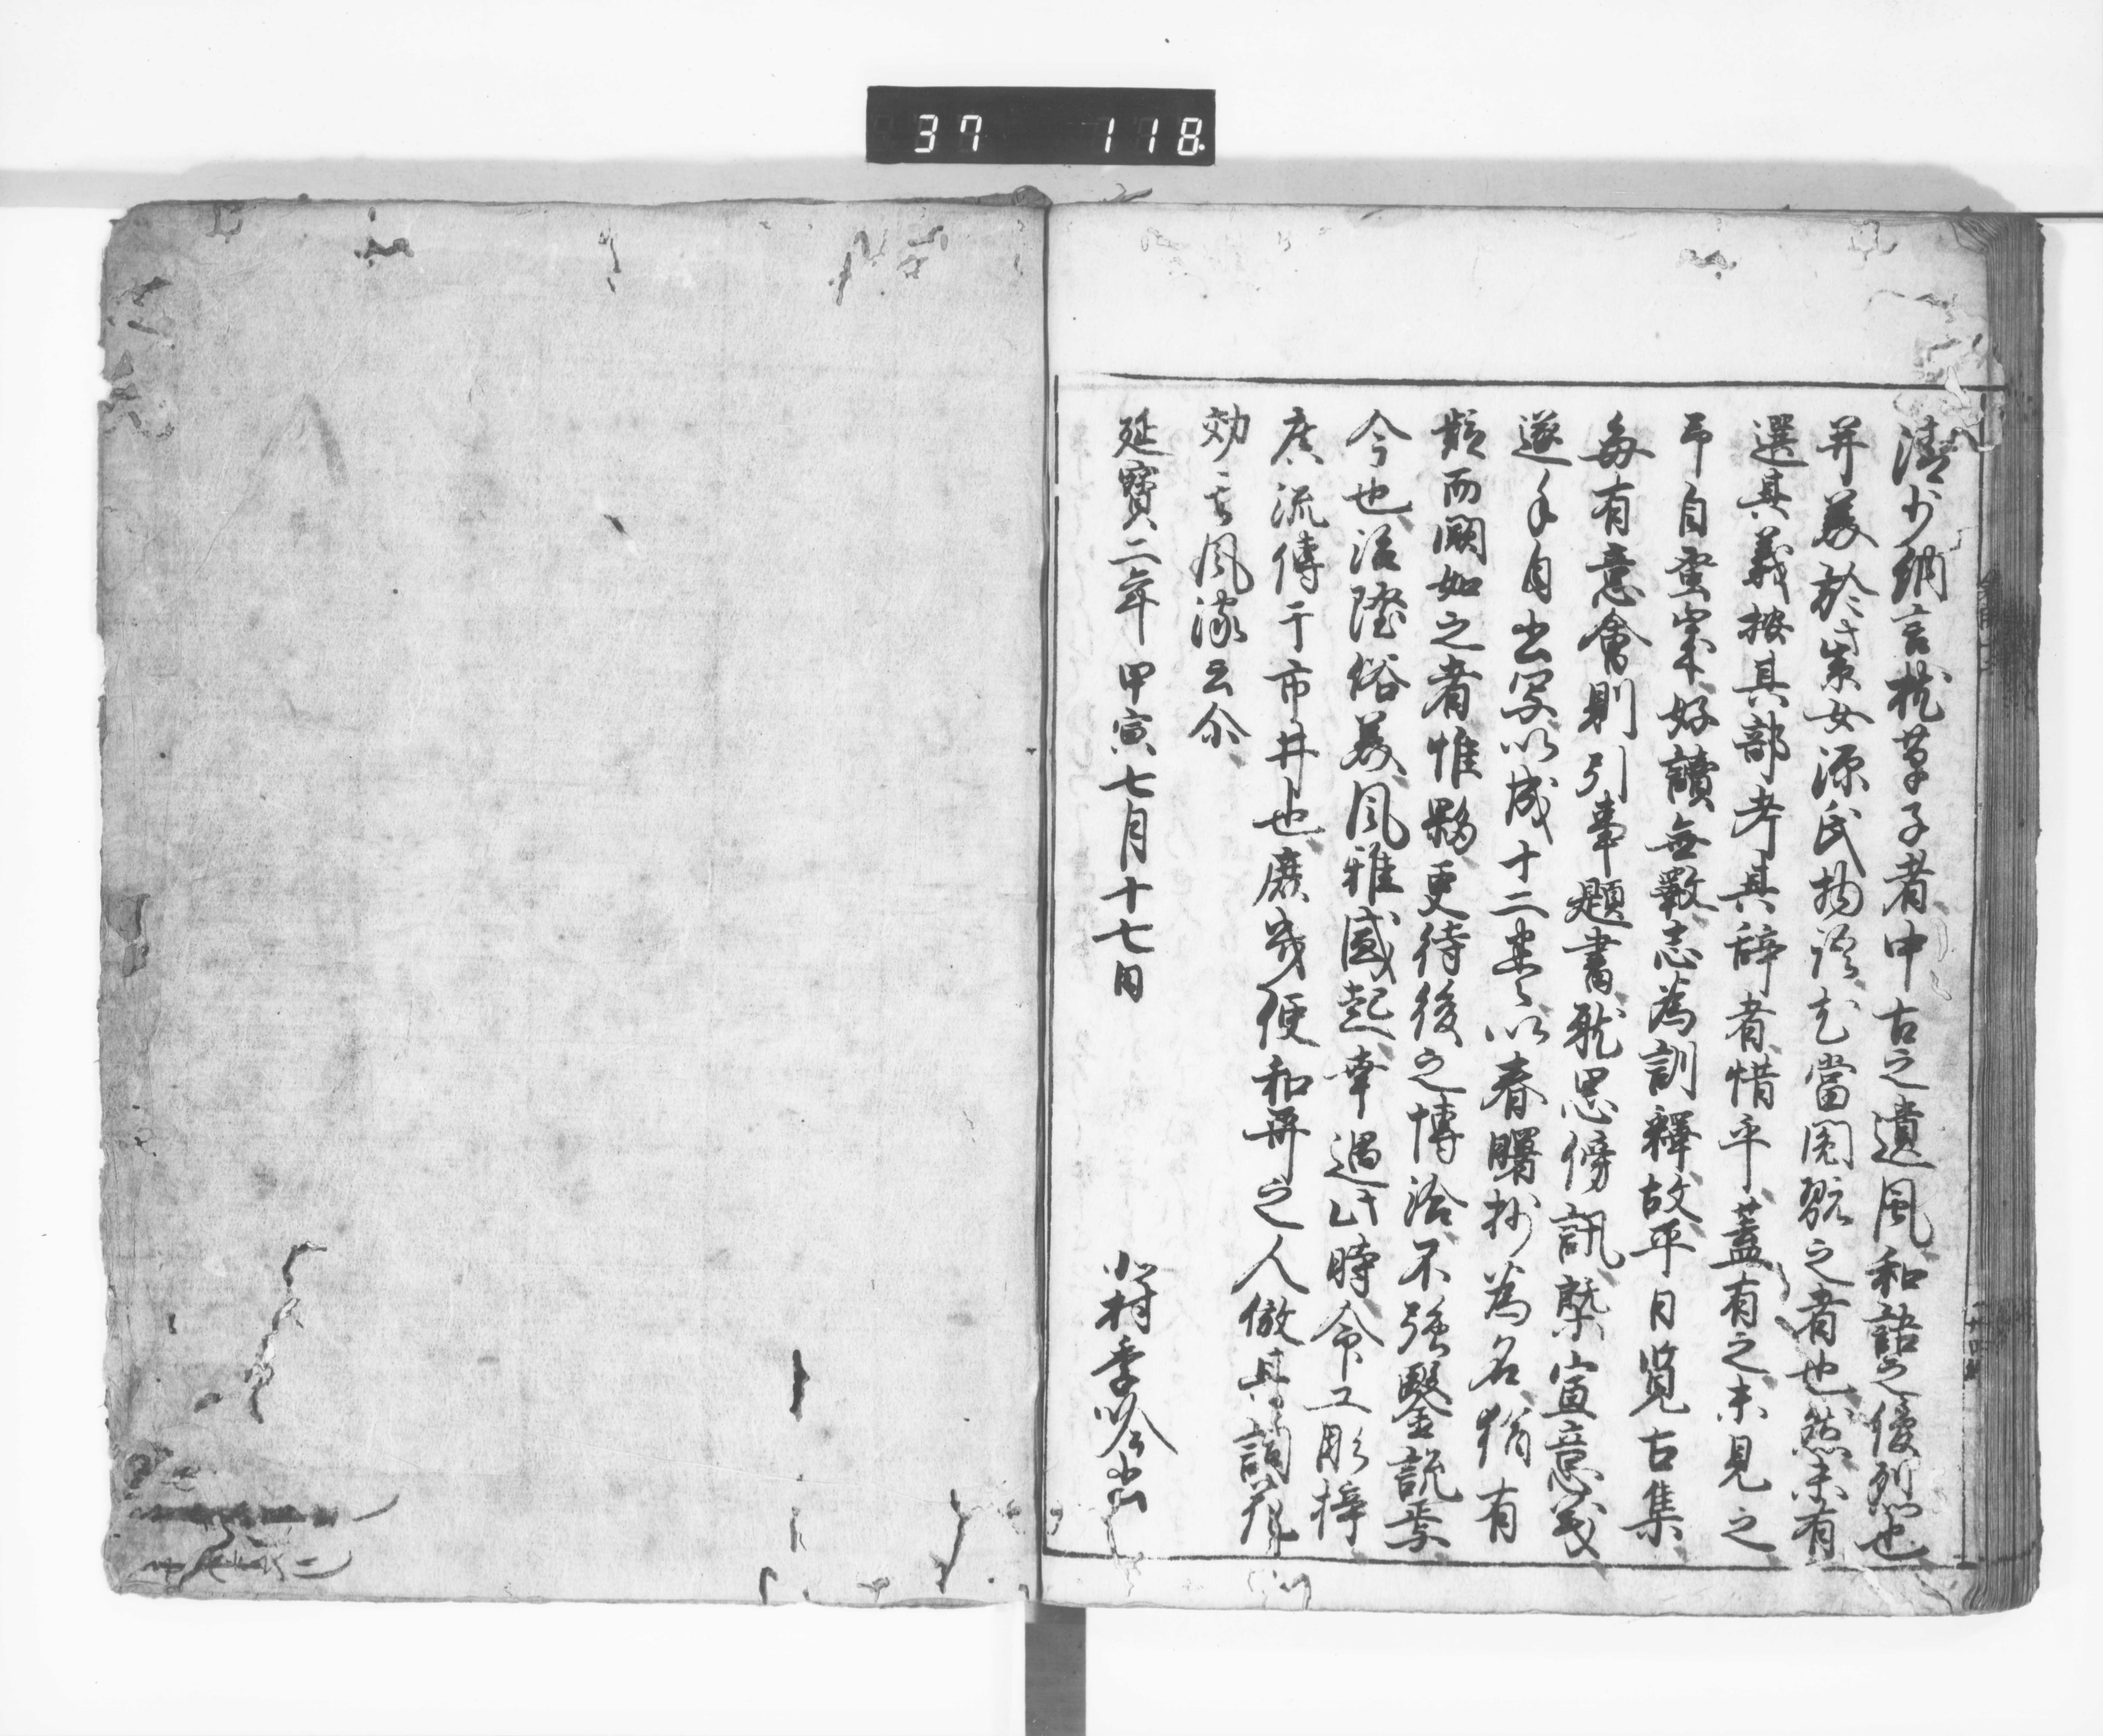 37 118
清少納言枕草子者中古之遺風和語之優列也
并義於紫女源氏物語尤當閲翫之者也然未有
選其義按其部考其辞者惜乎蓋有之未見之
耳自蚤歳好讀無斁志為訓釋故平日覧古集
毎有意會則引事題書就思傍訊槩宣意義
遂手自出写以成十二巻以春曙抄為名猶有
疑而闕如之者惟夥更待後之博洽不強鑿説焉
今也治隆俗美風雅盛起幸遇此時命工彫梓
庶流傳于市井也庶幾便和再之人傚其詞花
効言風流云尒
延寶二年甲寅七月十七日
北村季吟書